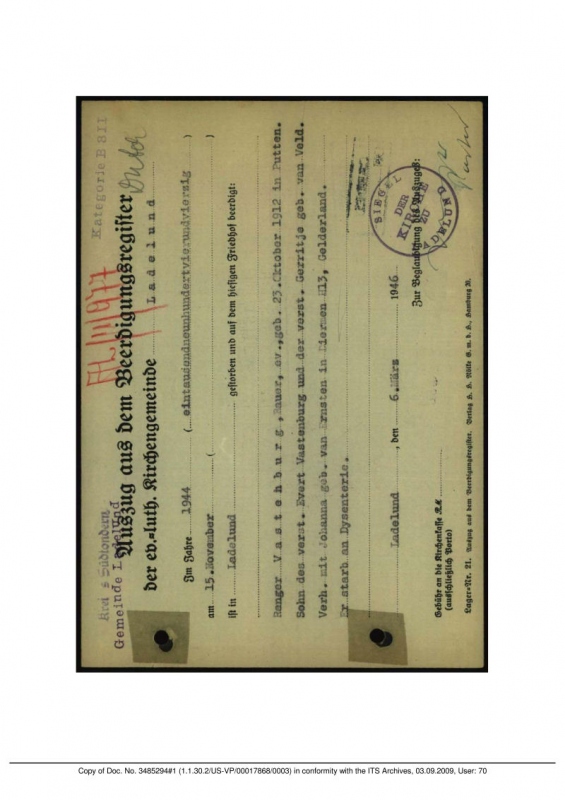 Kategorie B 2II
Kreis Südtondern
Gemeinde Ladelund
Auszug aus dem Beerdigungsregister
der ev.=luth. Kirchengemeinde Ladelund
Im Jahre 1944 (eintausendneunhundertvierundvierzig)
am 15.November ( )
ist in Ladelund gestorben und auf dem hiesigen Friedhof beerdigt:
Renger Vastenburg, Bauer, ev., geb. 23.Oktober 1912 in Putten.
Sohn des verst. Evert Vastenburg und der verst. Gerritje geb. van Veld.
Verh. mit Johanna geb. van Ernsten in Diermen H13, Gelderland.
Er starb an Dysenterie.
Ladelund, den 6.März 1946
SIEGEL DER KIRCHE ZU LADELUND
Zur Beglaubigung des Auszuges:
Gebühr an die Kirchenkasse RM
(ausschließlich Porto)
Lager=Nr. 21. Auszug aus dem Beerdigungsregister. Verlag H. H. Nölke G. m. b. H., Hamburg 20.
Copy of Doc. No. 3485294#1 (1.1.30.2/US-VP/00017868/0003) in conformity with the ITS Archives, 03.09.2009, User: 70